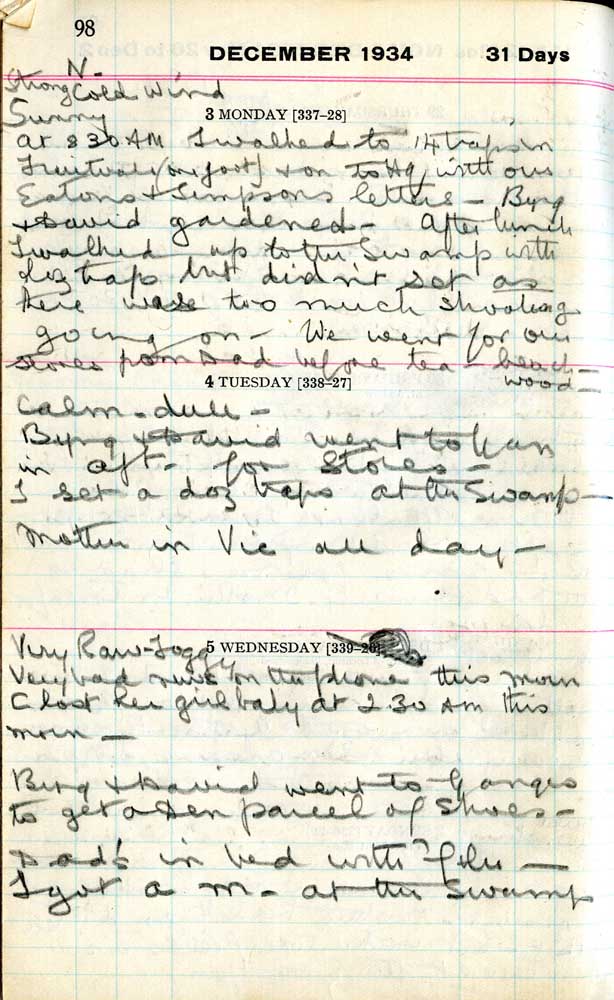 98
DECEMBER 1934 31 Days
N.
Strong Cold Wind
Sunny
3 MONDAY [337–28]
at 8 30 AM I walked to 14 traps in
Fruitvale (on foot) & on to Hq with our
Eatons & Simpsons letters – Byng
& David gardened – After lunch
I walked up to the Swamp with
doz traps but didn't set as
there was too much shooting
going on – We went for our
stores from Dad before tea – beach –
wood –
4 TUESDAY [338–27]
Calm – dull –
Byng & David went to Gan
in aft – for Stores –
I set a doz traps at the Swamp –
Mother in Vic all day –
5 WEDNESDAY [339–26]
Very Raw – Foggy
Very bad news on the phone this morn
C lost her girl baby at 2.30 AM this
morn –
Byng & David went to Ganges
to get a parcel of Shoes –
Dad's in bed with ? flu –
I got a m – at the Swamp